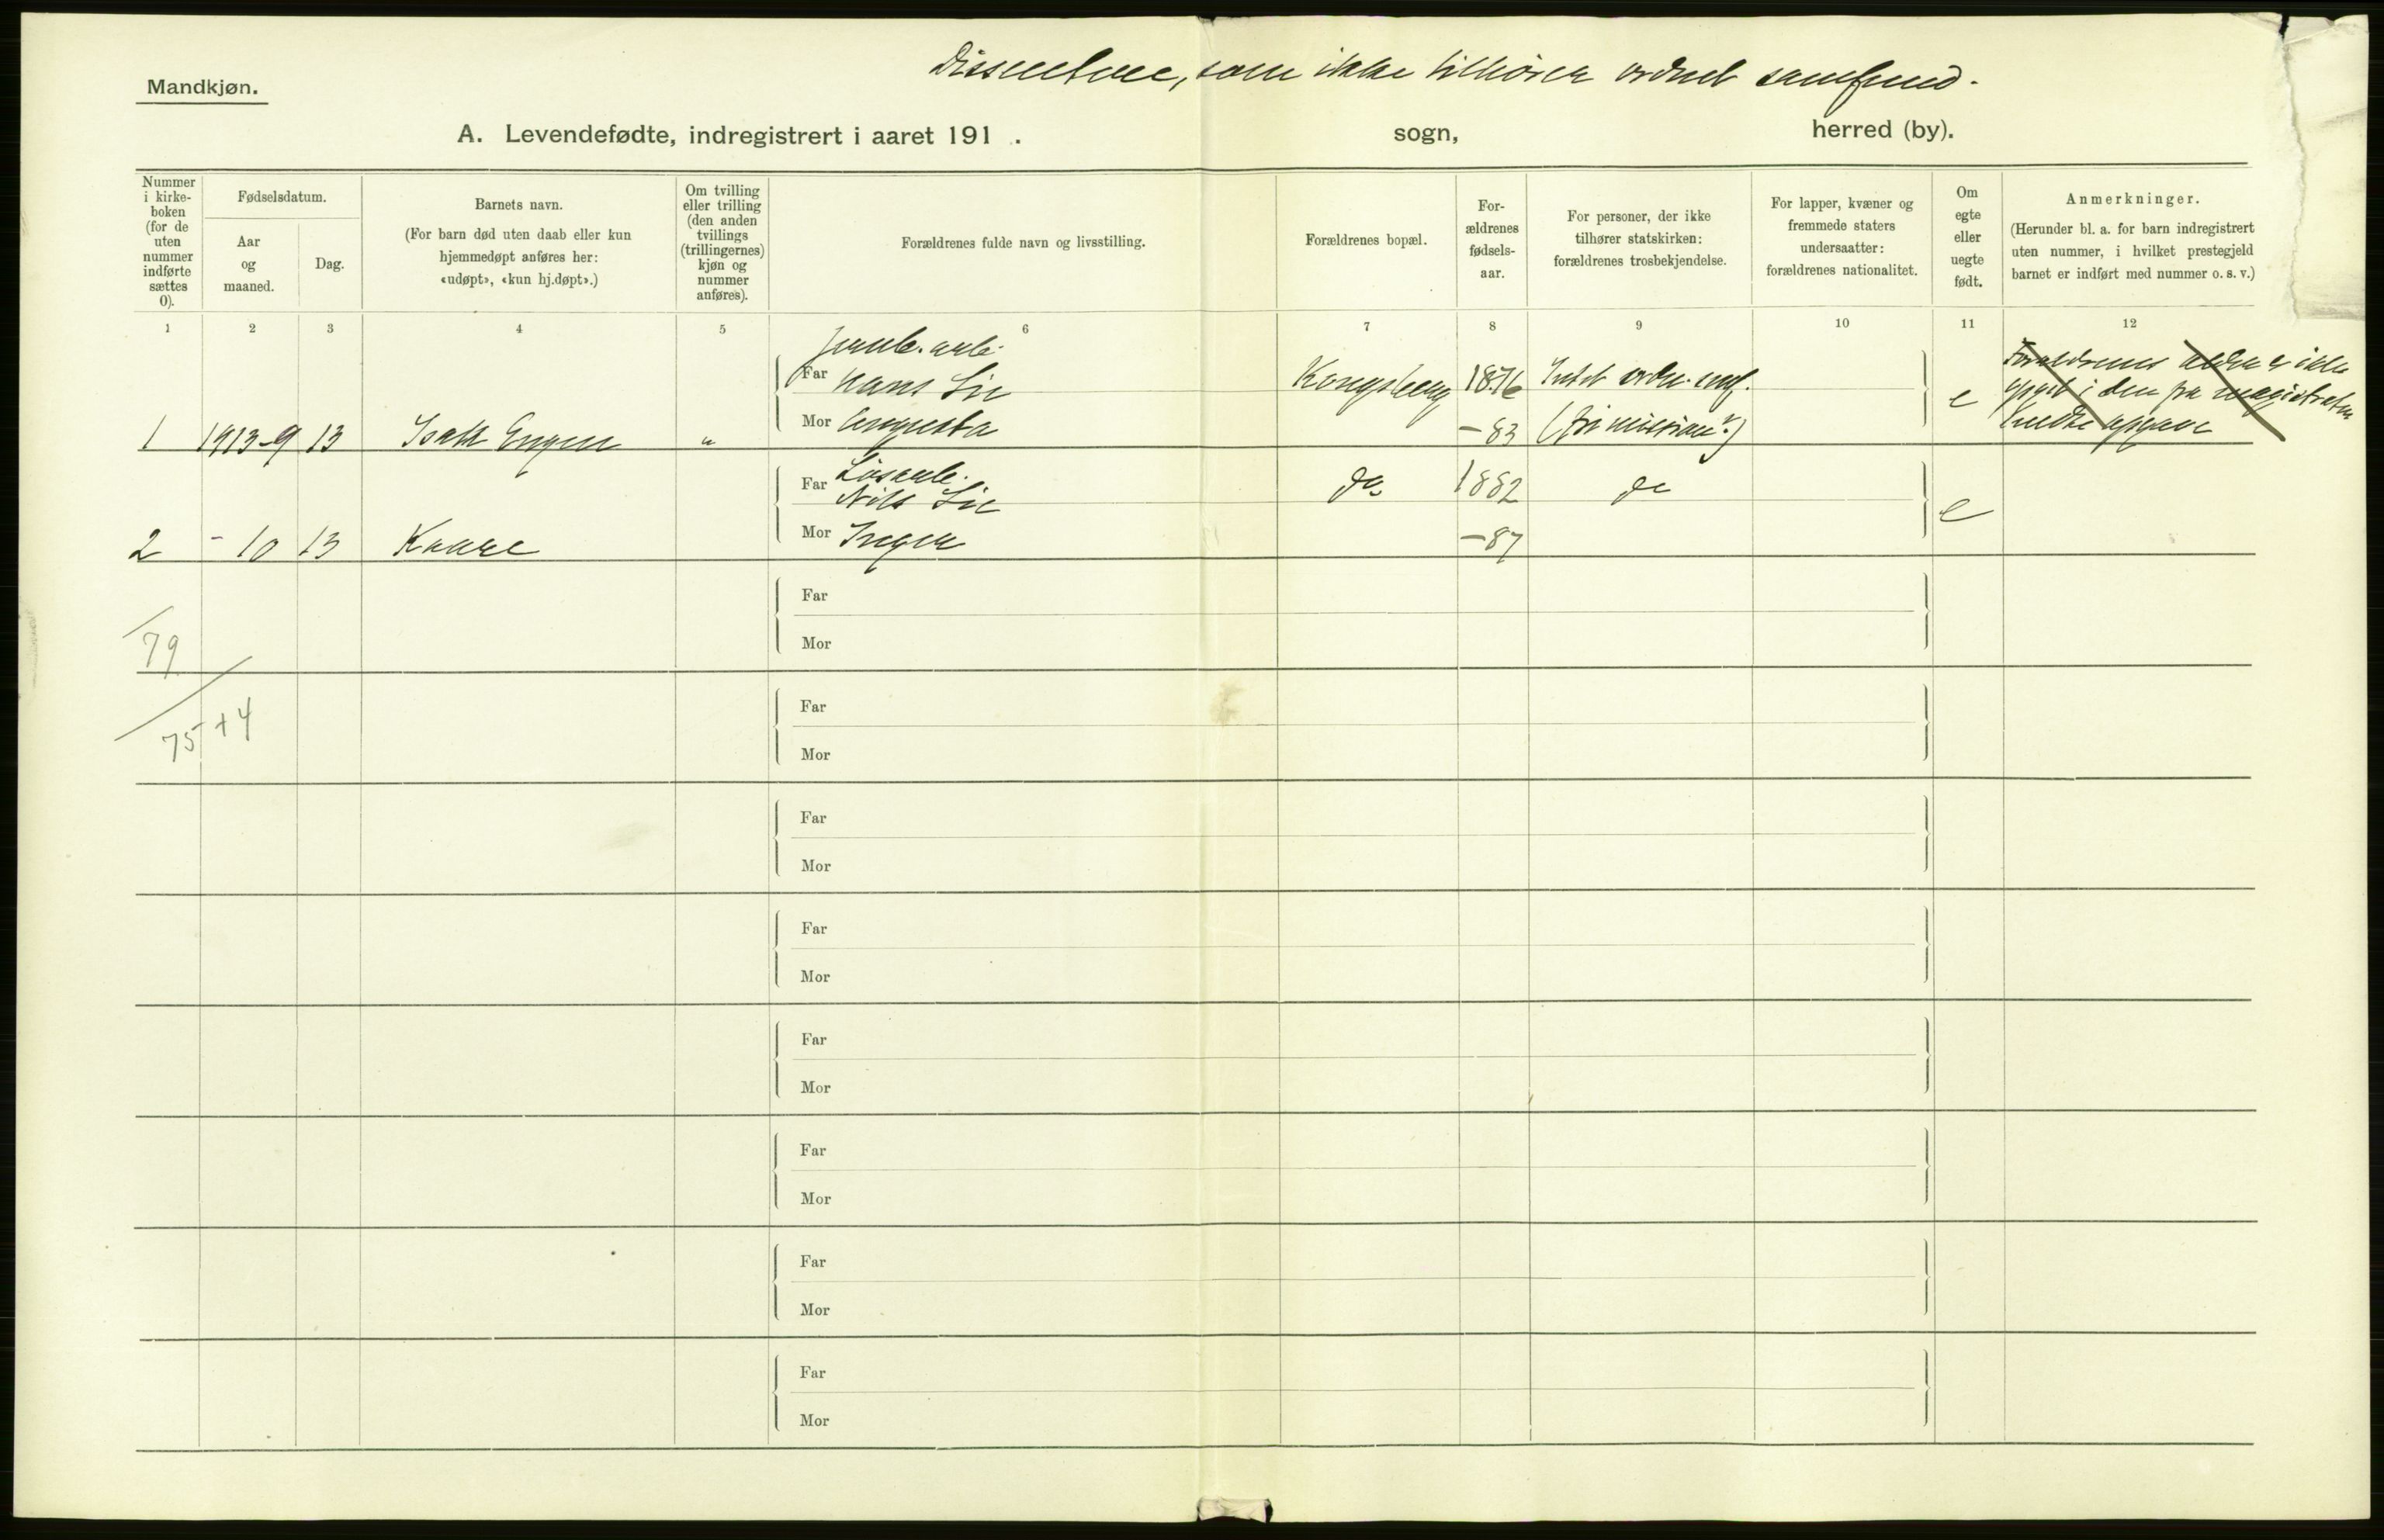 Dissentere, som ikke tilhører ordnet samfund.
Mandkjøn.
A. Levendefødte, indregistrert i aaret 191 . sogn, herred (by).
Nummer i kirke-boken (for de uten nummer indførte sættes 0).
Fødselsdatum.
Aar og maaned.
Dag.
Barnets navn.
(For barn død uten daab eller kun hjemmedøpt anføres her: «udøpt», «kun hj.døpt».)
Om tvilling eller trilling (den anden tvillings (trillingernes) kjøn og nummer anføres).
Forældrenes fulde navn og livsstilling.
Forældrenes bopæl.
For-ældrenes fødsels-aar.
For personer, der ikke tilhører statskirken: forældrenes trosbekjendelse.
For lapper, kvæner og fremmede staters undersaatter: forældrenes nationalitet.
Om egte eller uegte født.
Anmerkninger.
(Herunder bl. a. for barn indregistrert uten nummer, i hvilket prestegjeld barnet er indført med nummer o. s. v.)
1 2 3 4 5 6 7 8 9 10 11 12
Far Hans Lie Kongsberg 1876 Intet
Mor Augusta -83 (fri mission?) e
1 1913-9 13 Isak "
Forældrenes alder er ikke
opgit i den fra magistraten
sendte opgave
Far Løsarb. Nils Lie do 1882 do e
Mor Inga -87
2 - 10 13 Kaare
Far
Mor
79
Far
Mor
75+4
Far
Mor
Far
Mor
Far
Mor
Far
Mor
Far
Mor
Far
Mor